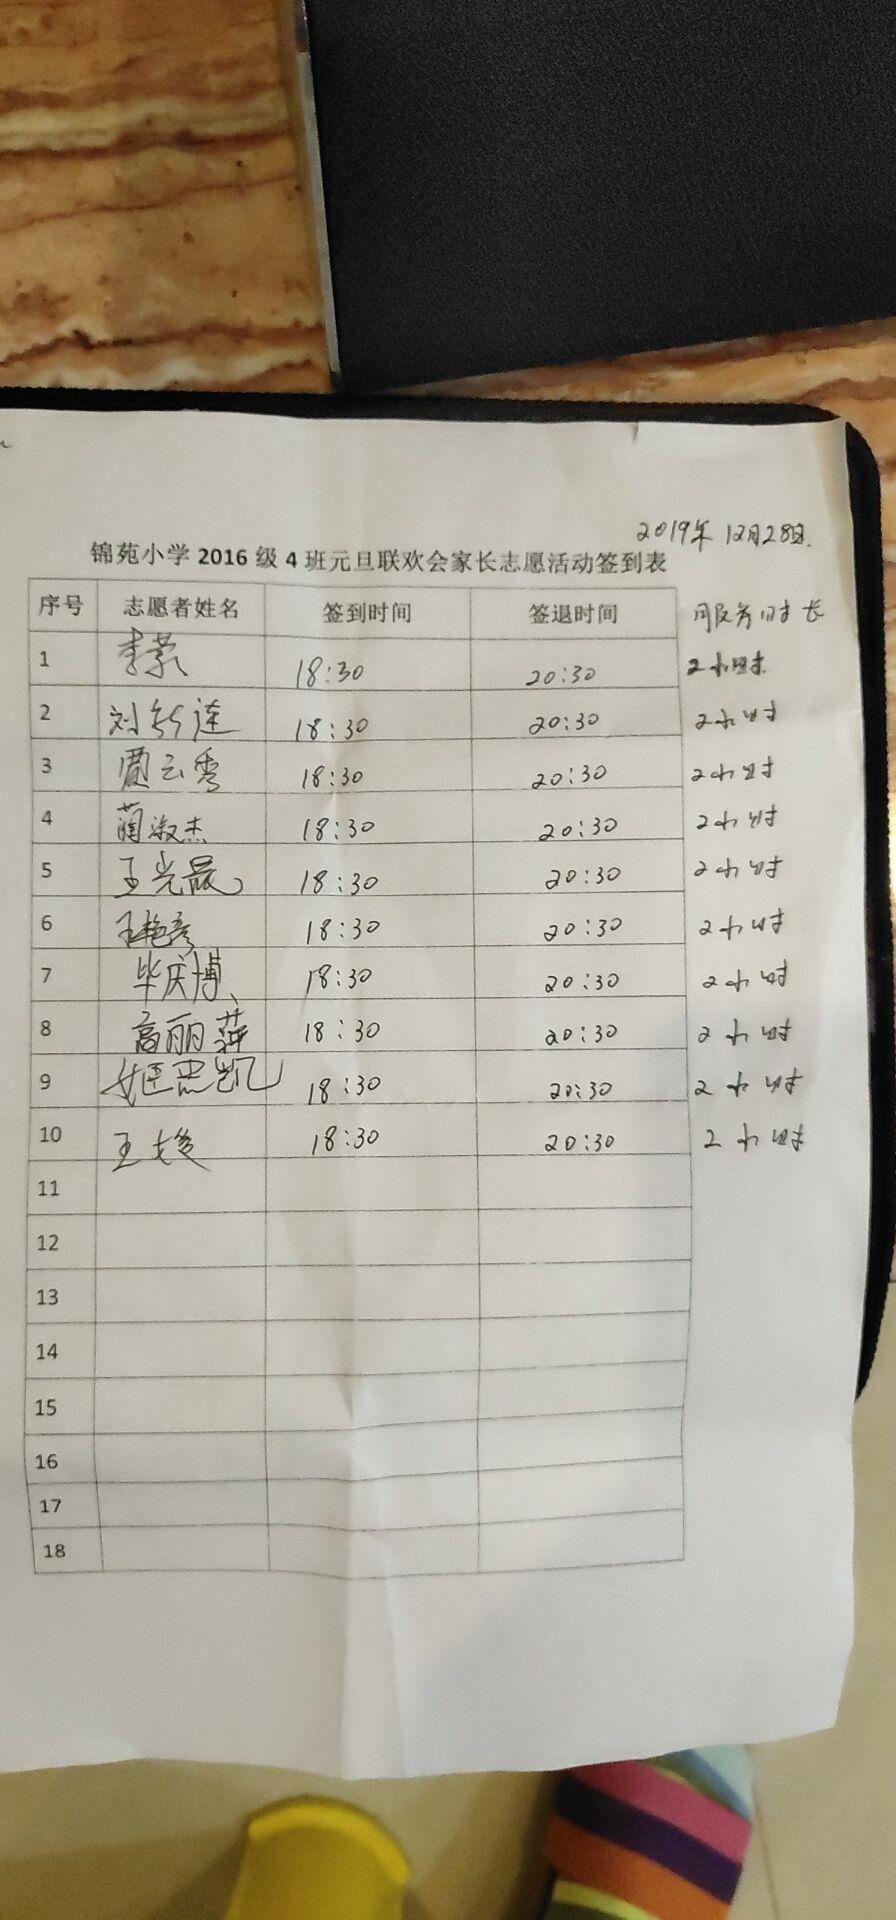 2019年12月28日.
锦苑小学2016级4班元旦联欢会家长志愿活动签到表
序号 志愿者姓名 签到时间 签退时间 服务时长
1 李蒙 18:30 20:30 2小时
2 刘新莲 18:30 20:30 2小时
3 贾云秀 18:30 20:30 2小时
4 蔺淑杰 18:30 20:30 2小时
5 王光晨 18:30 20:30 2小时
6 王艳彦 18:30 20:30 2小时
7 毕庆博 18:30 20:30 2小时
8 高丽萍 18:30 20:30 2小时
9 姬忠凯 18:30 20:30 2小时
10 王 18:30 20:30 2小时
11
12
13
14
15
16
17
18